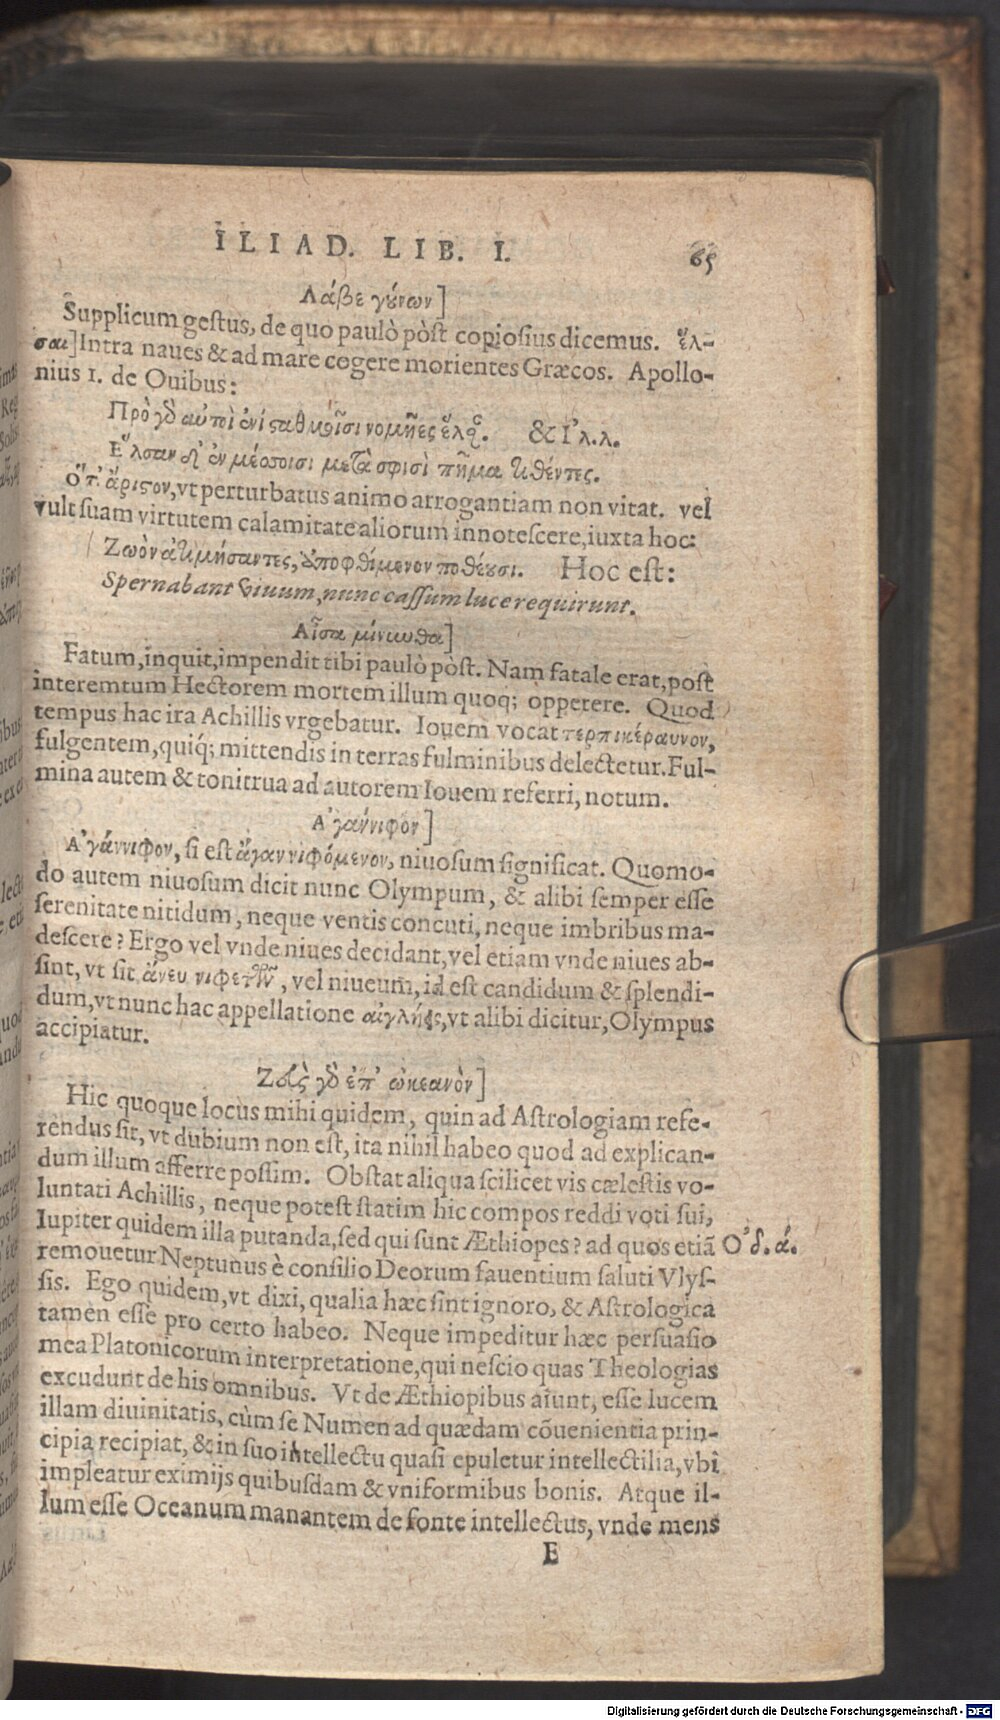 ILIAD. LIB. I. 65
Λάβε γούνων]
Supplicum gestus, de quo paulò pòst copiosius dicemus. ἔλ-
σαι] Intra naues & ad mare cogere morientes Græcos. Apollo-
nius 1. de Ouibus:
Πρὸ γὸ αὐτοὶ ἐνὶ σταθμοῖσι νομῆες & Ἰλ.λ.
Ἔλσαν δ' ἐν μέσσοισι μετὰ σφισὶ πῆμα τιθέντες.
Ὅτ' ἄριστον, vt perturbatus animo arrogantiam non vitat. vel
vult suam virtutem calamitate aliorum innotescere, iuxta hoc:
Ζωὸν ἀτιμήσαντες, ἀποφθίμενον ποθέουσι. Hoc est:
Spernabant viuum, nunc cassum luce requirunt.
Αἶσα μίνυνθα]
Fatum, inquit, impendit tibi paulò pòst. Nam fatale erat, post
interemtum Hectorem mortem illum quoq; oppetere. Quod
tempus hac ira Achillis vrgebatur. Iouem vocat τερπικέραυνον,
fulgentem, quiq́; mittendis in terras fulminibus delectetur. Ful-
mina autem & tonitrua ad autorem Iouem referri, notum.
Ἀγάννιφον]
Ἀγάννιφον, si est ἄγαν νιφόμενον, niuosum significat. Quomo-
do autem niuosum dicit nunc Olympum, & alibi semper esse
serenitate nitidum, neque ventis concuti, neque imbribus ma-
descere? Ergo vel vnde niues decidant, vel etiam vnde niues ab-
sint, vt sit ἄνευ νιφετῶν, vel niueum, id est candidum & splendi-
dum, vt nunc hac appellatione αἰγλήεις, vt alibi dicitur, Olympus
accipiatur.
Ζεὺς γὸ ἐπ' ὠκεανὸν]
Hic quoque locus mihi quidem, quin ad Astrologiam refe-
rendus sit, vt dubium non est, ita nihil habeo quod ad explican-
dum illum afferre possim. Obstat aliqua scilicet vis cælestis vo-
luntati Achillis, neque potest statim hic compos reddi voti sui,
Iupiter quidem illa putanda, sed qui sunt Æthiopes? ad quos etiã Ὀδ.ά.
remouetur Neptunus è consilio Deorum fauentium saluti Vlys-
sis. Ego quidem, vt dixi, qualia hæc sint ignoro, & Astrologica
tamen esse pro certo habeo. Neque impeditur hæc persuasio
mea Platonicorum interpretatione, qui nescio quas Theologias
excudunt de his omnibus. Vt de Æthiopibus aiunt, esse lucem
illam diuinitatis, cùm se Numen ad quædam cõuenientia prin-
cipia recipiat, & in suo intellectu quasi epuletur intellectilia, vbi
impleatur eximijs quibusdam & vniformibus bonis. Atque il-
lum esse Oceanum manantem de fonte intellectus, vnde mens
E
Digitalisierung gefördert durch die Deutsche Forschungsgemeinschaft - DFG